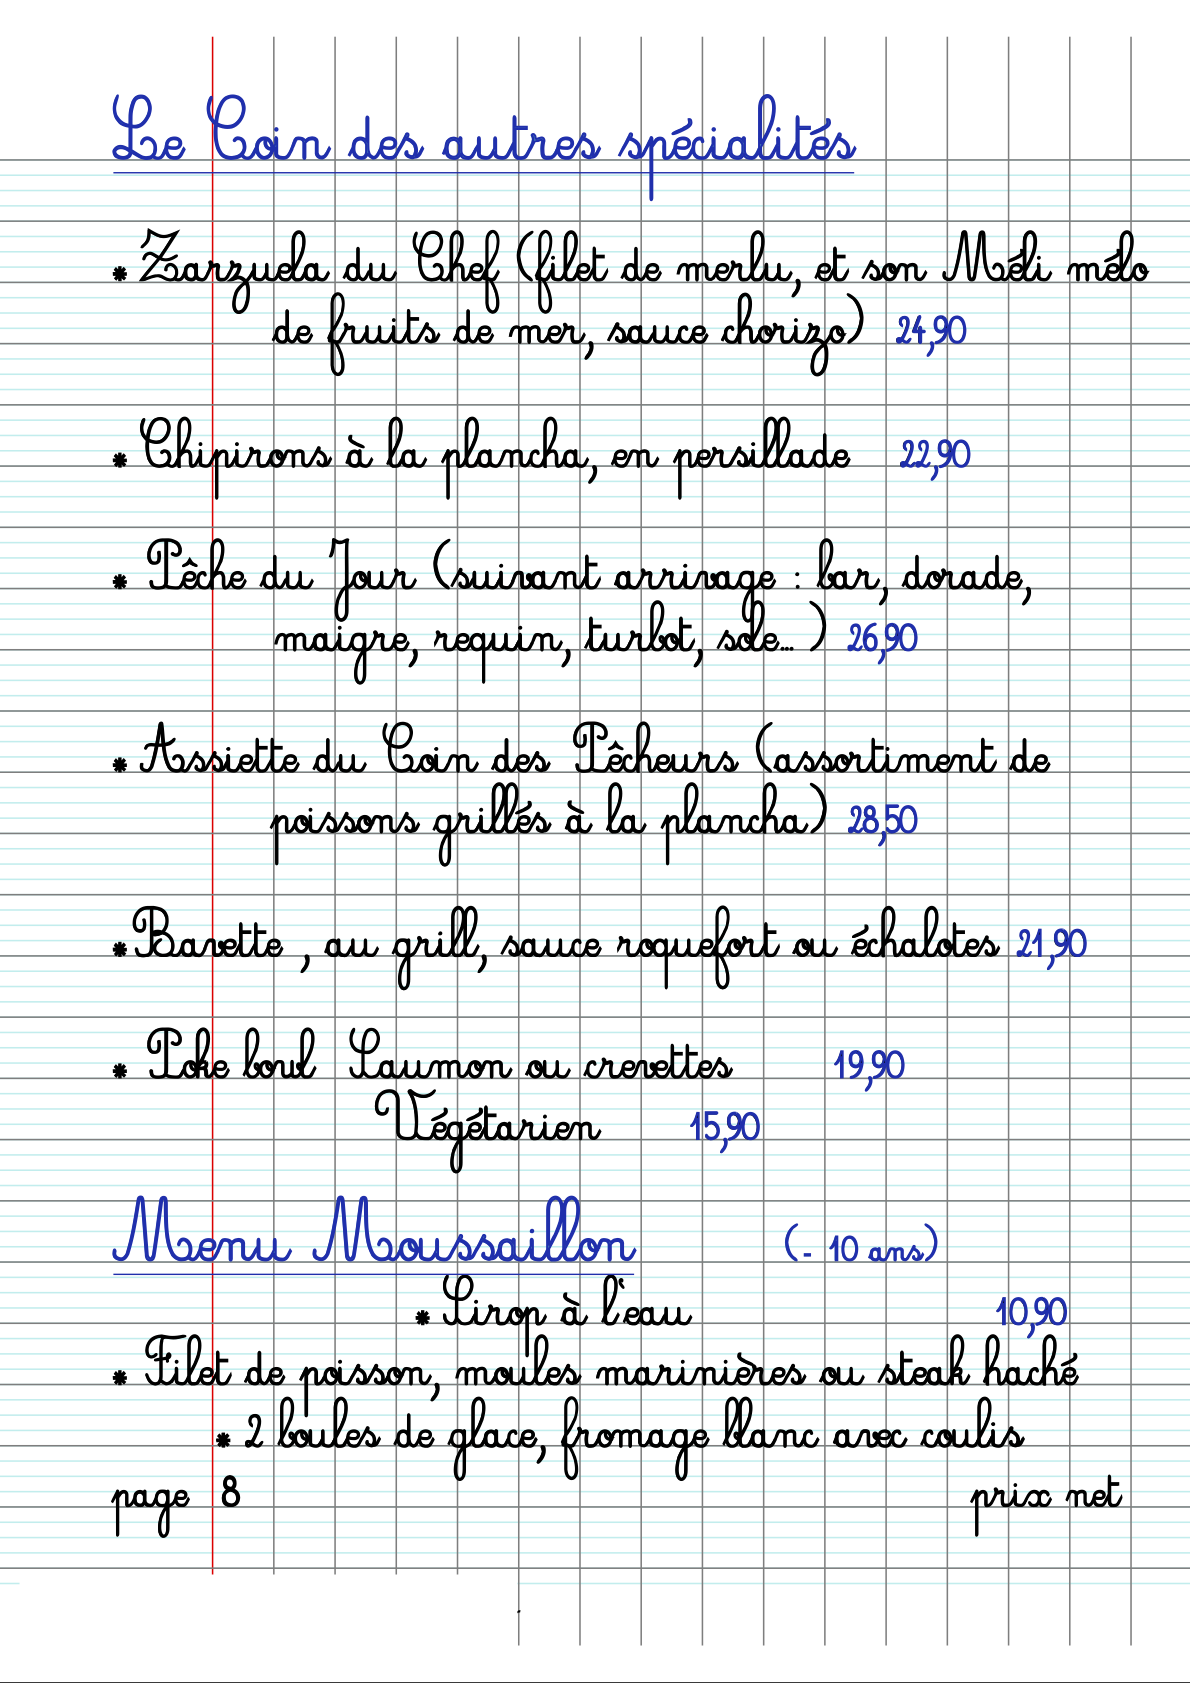 Le Coin des autres spécialités
* Zarzuela du Chef (filet de merlu, et son Méli mélo
de fruits de mer, sauce chorizo) 24,90
* Chipirons à la plancha, en persillade 22,90
* Pêche du Jour (suivant arrivage : bar, dorade,
maigre, requin, turbot, sole... ) 26,90
* Assiette du Coin des Pêcheurs (assortiment de
poissons grillés à la plancha) 28,50
* Bavette , au grill, sauce roquefort ou échalotes 21,90
* Poke bowl Saumon ou crevettes 19,90
Végétarien 15,90
Menu Moussaillon (- 10 ans)
* Sirop à l'eau 10,90
* Filet de poisson, moules marinières ou steak haché
* 2 boules de glace, fromage blanc avec coulis
page 8 prix net